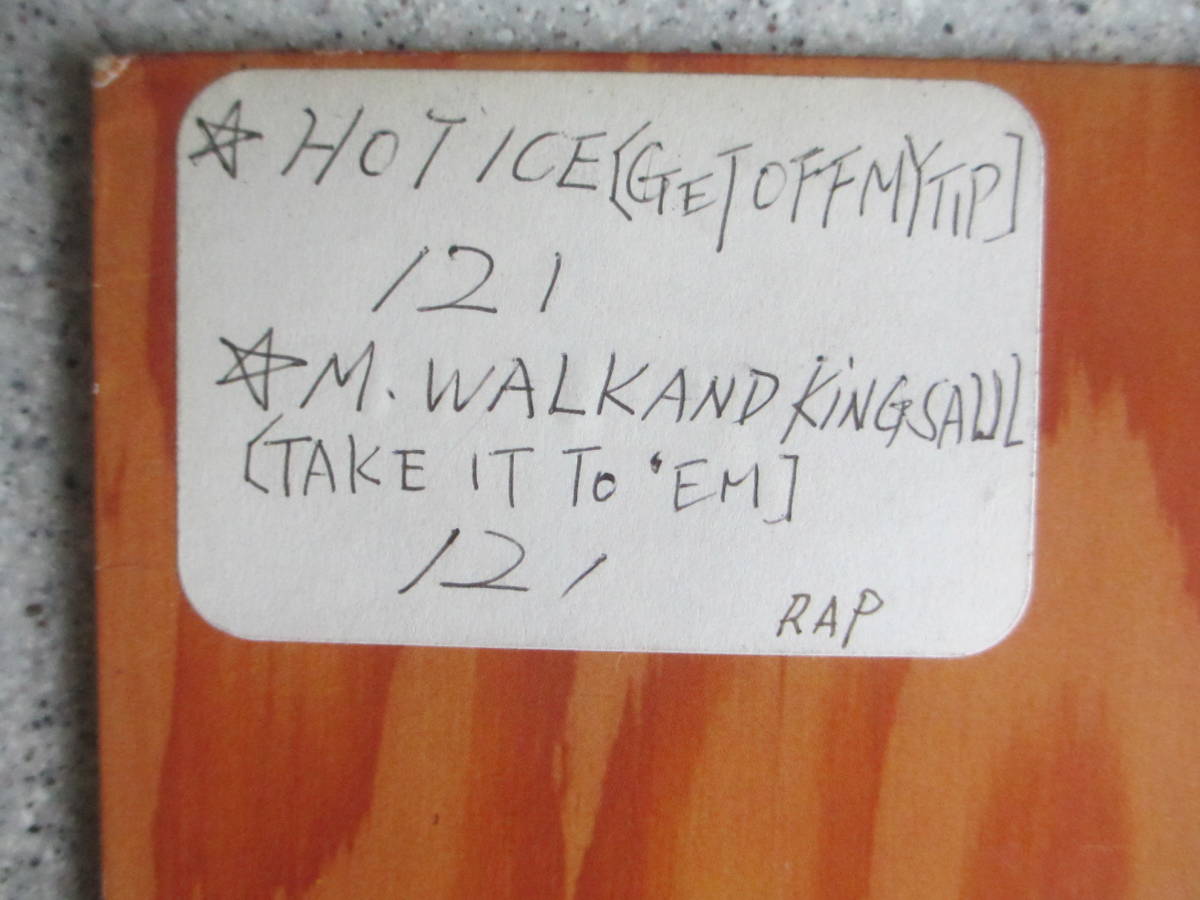 ☆ HOT ICE [GET OFF MY TIP]
121
☆ M. WALK AND KING SAUL
[TAKE IT TO 'EM]
121
RAP